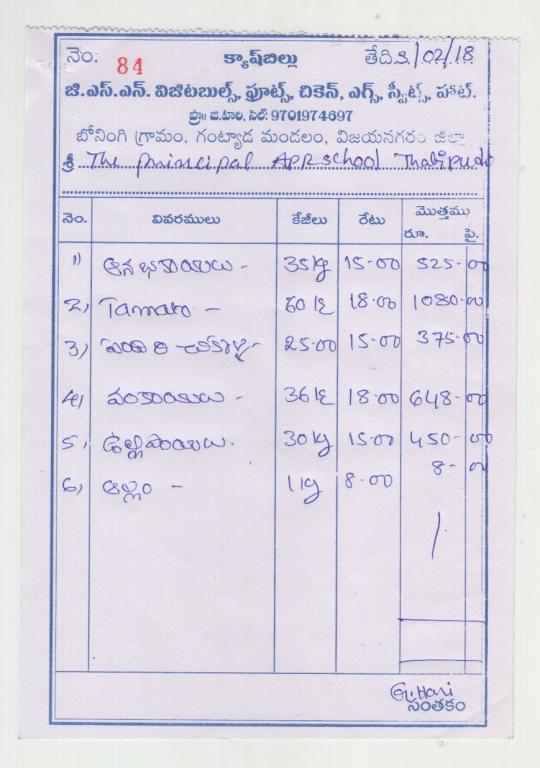 నెం. 84 క్యాష్‌బిల్లు తేది 3/02/18
జి.ఎస్.ఎన్. విజిటబుల్స్, ఫ్రూట్స్, చికెన్, ఎగ్స్, స్వీట్స్, హాట్.
ప్రొ॥ జి.హరి, సెల్: 9701974697
బోనంగి గ్రామం, గంట్యాడ మండలం, విజయనగరం జిల్లా
శ్రీ The principal APR school
నెం. వివరములు కేజీలు రేటు మొత్తము
రూ. పై.
1) ఆనభకాయలు - 35 kg 15-00 525-00
2) Tamato - 60 kg 18.00 1080-00
3) 25.00 15.00 375-00
4) వంకాయలు - 36 kg 18.00 648-00
5) ఉల్లిపాయలు. 30 kg 15.00 450-00
6) అల్లం - 1 kg 8.00 8-00
G. Hari
సంతకం